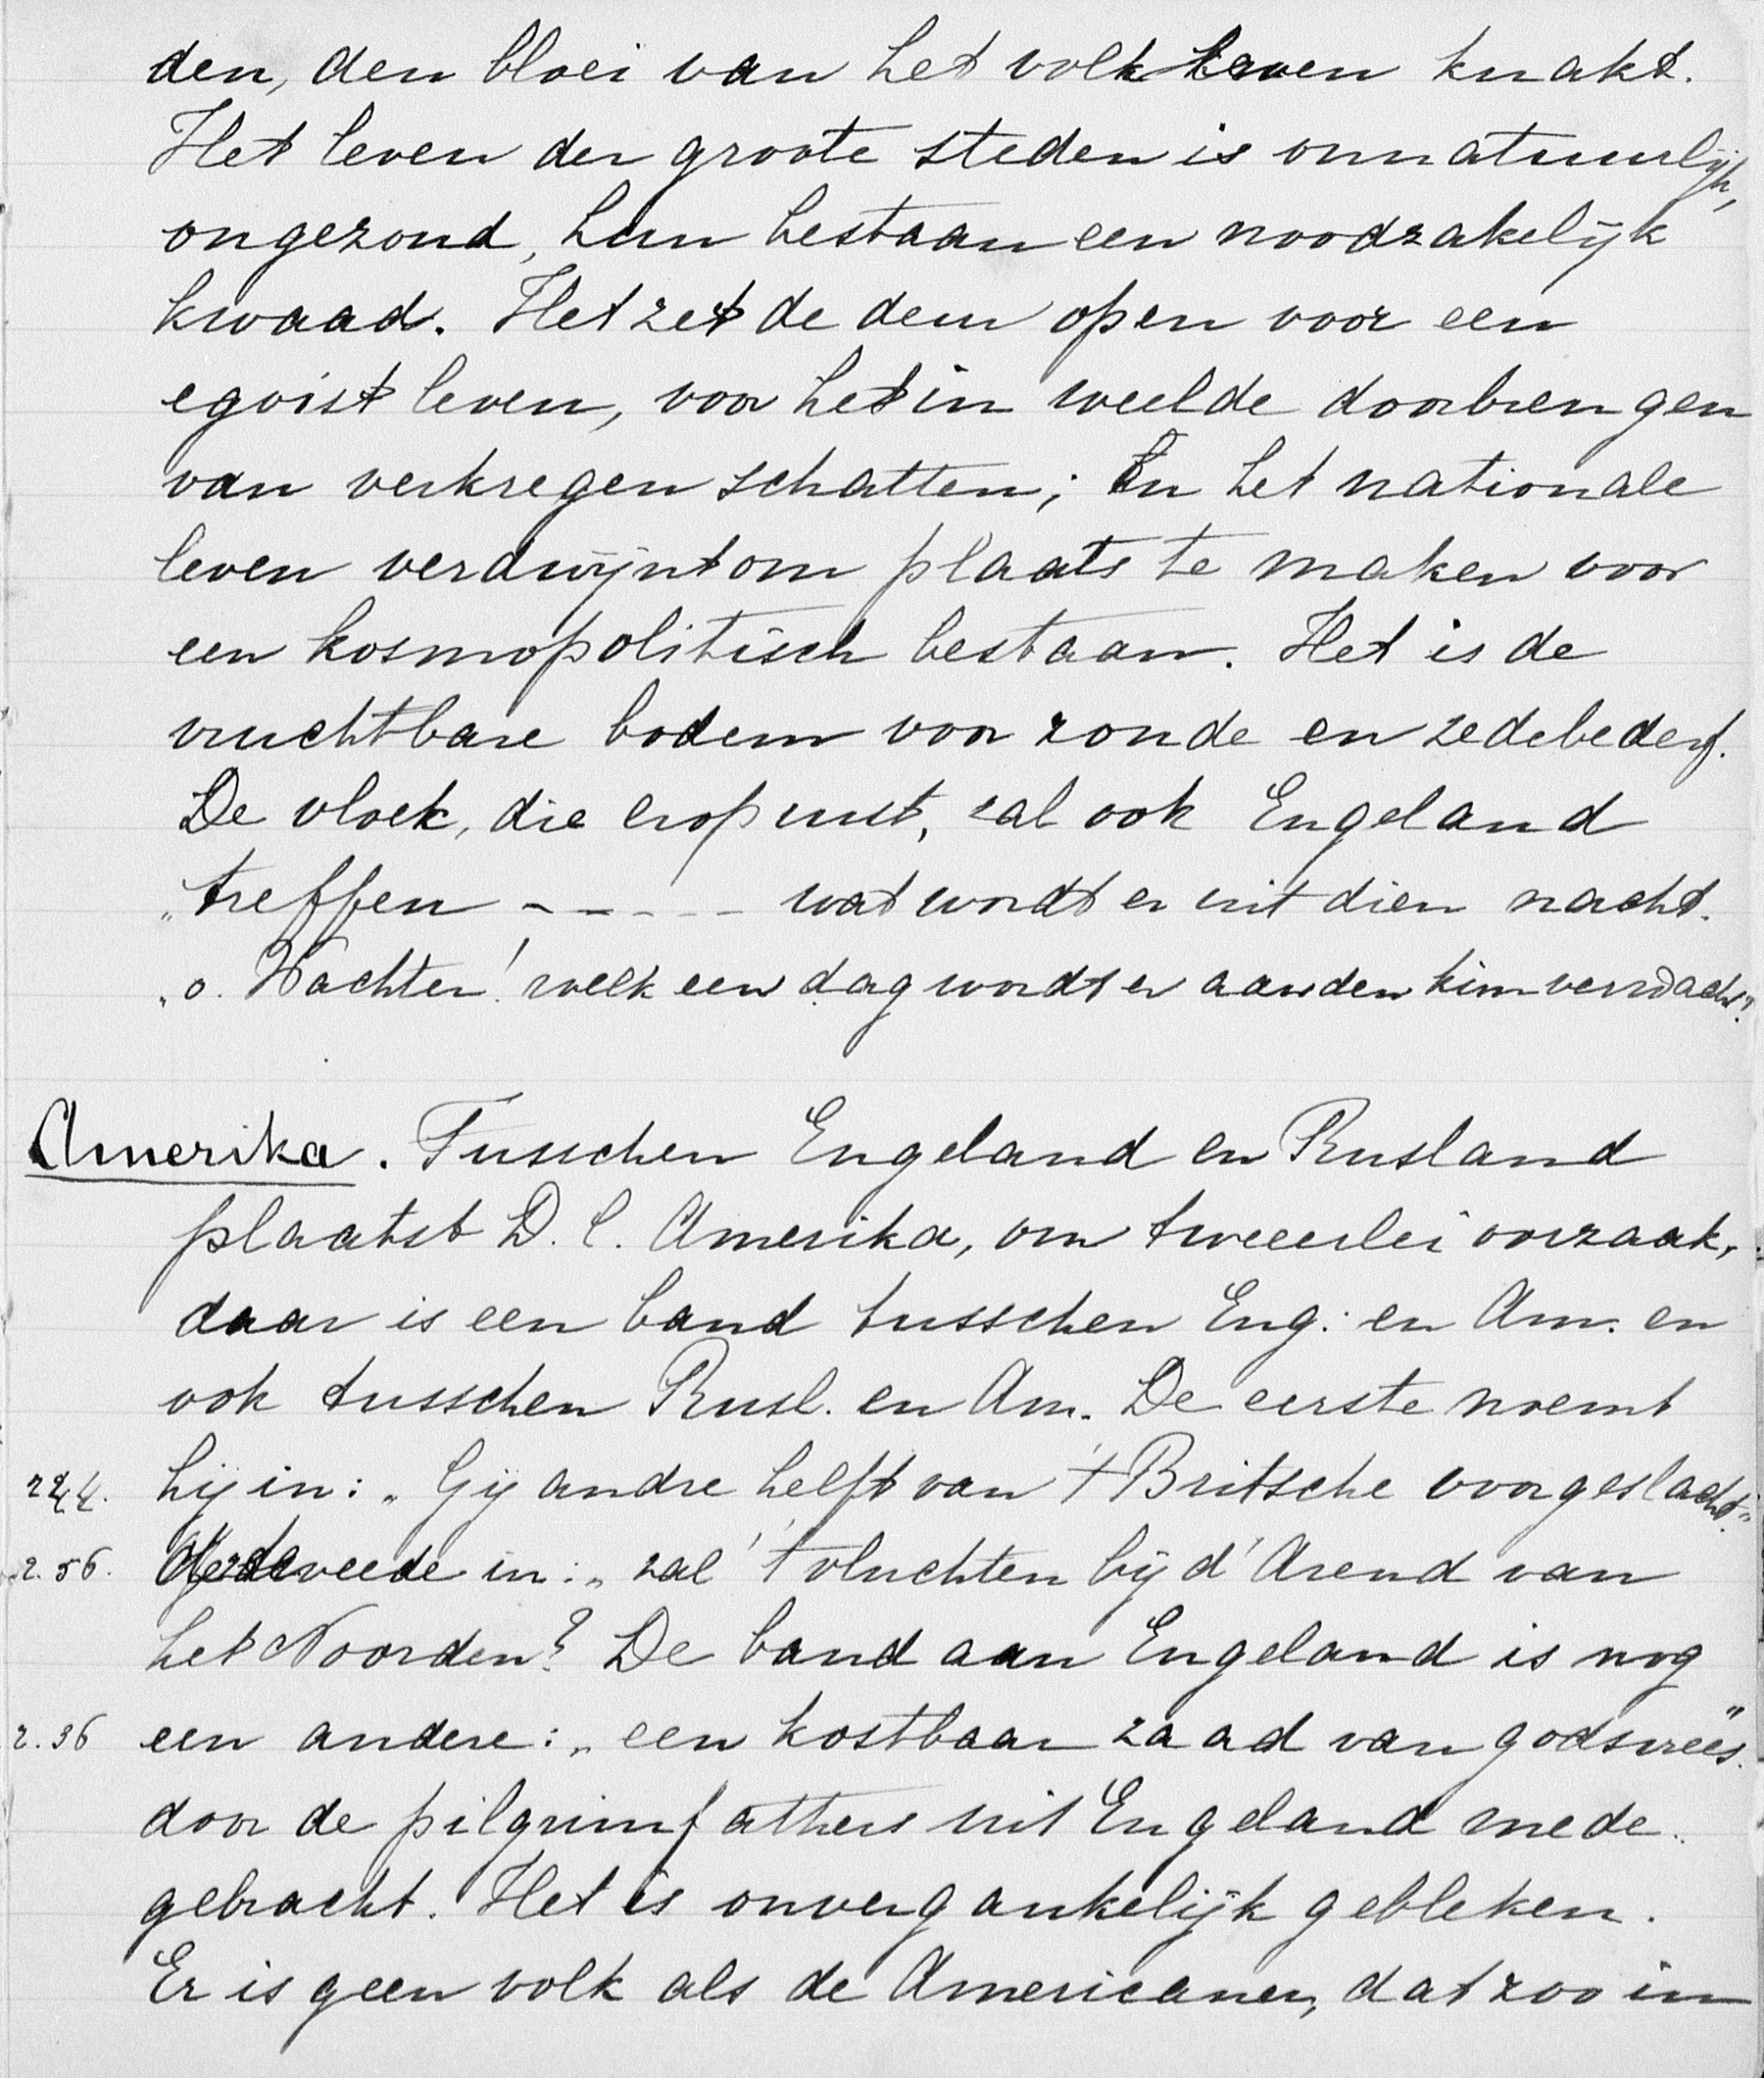 den, den bloei van het volk leven knakt.
Het leven der groote steden is onnatuurlijk,
ongezond, hun bestaan een noodzakelijk
kwaad. Het zet de deur open voor een
egoist leven, voor het in weelde doorbrengen
van verkregen schatten; En het nationale
leven verdwijnt om plaats te maken voor
een kosmopolitisch bestaan. Het is de
vruchtbare bodem voor zonde en zedebederf.
De vloek, die erop rust, zal ook Engeland
„treffen - - - - - wat wordt er uit dien nacht.
„o. Wachter! welk een dag wordt er aan den kim verwacht?"
Amerika. Tusschen Engeland en Rusland
plaatst D. C. Amerika, om tweeerlei oorzaak,
daar is een band tusschen Eng. en Am. en
ook tusschen Rusl. en Am. De eerste noemt
r 44. hij in: „Gij andre helft van 't Britsche voorgeslacht."
r. 56. De tweede in: „zal 't vluchten bij d' Arend van
het Noorden? De band aan Engeland is nog
r. 36 een andere: „een kostbaar zaad van godsvrees."
door de pilgrimfathers uit Engeland mede-
gebracht. Het is onvergankelijk gebleken.
Er is geen volk als de Americanen, dat zoo in